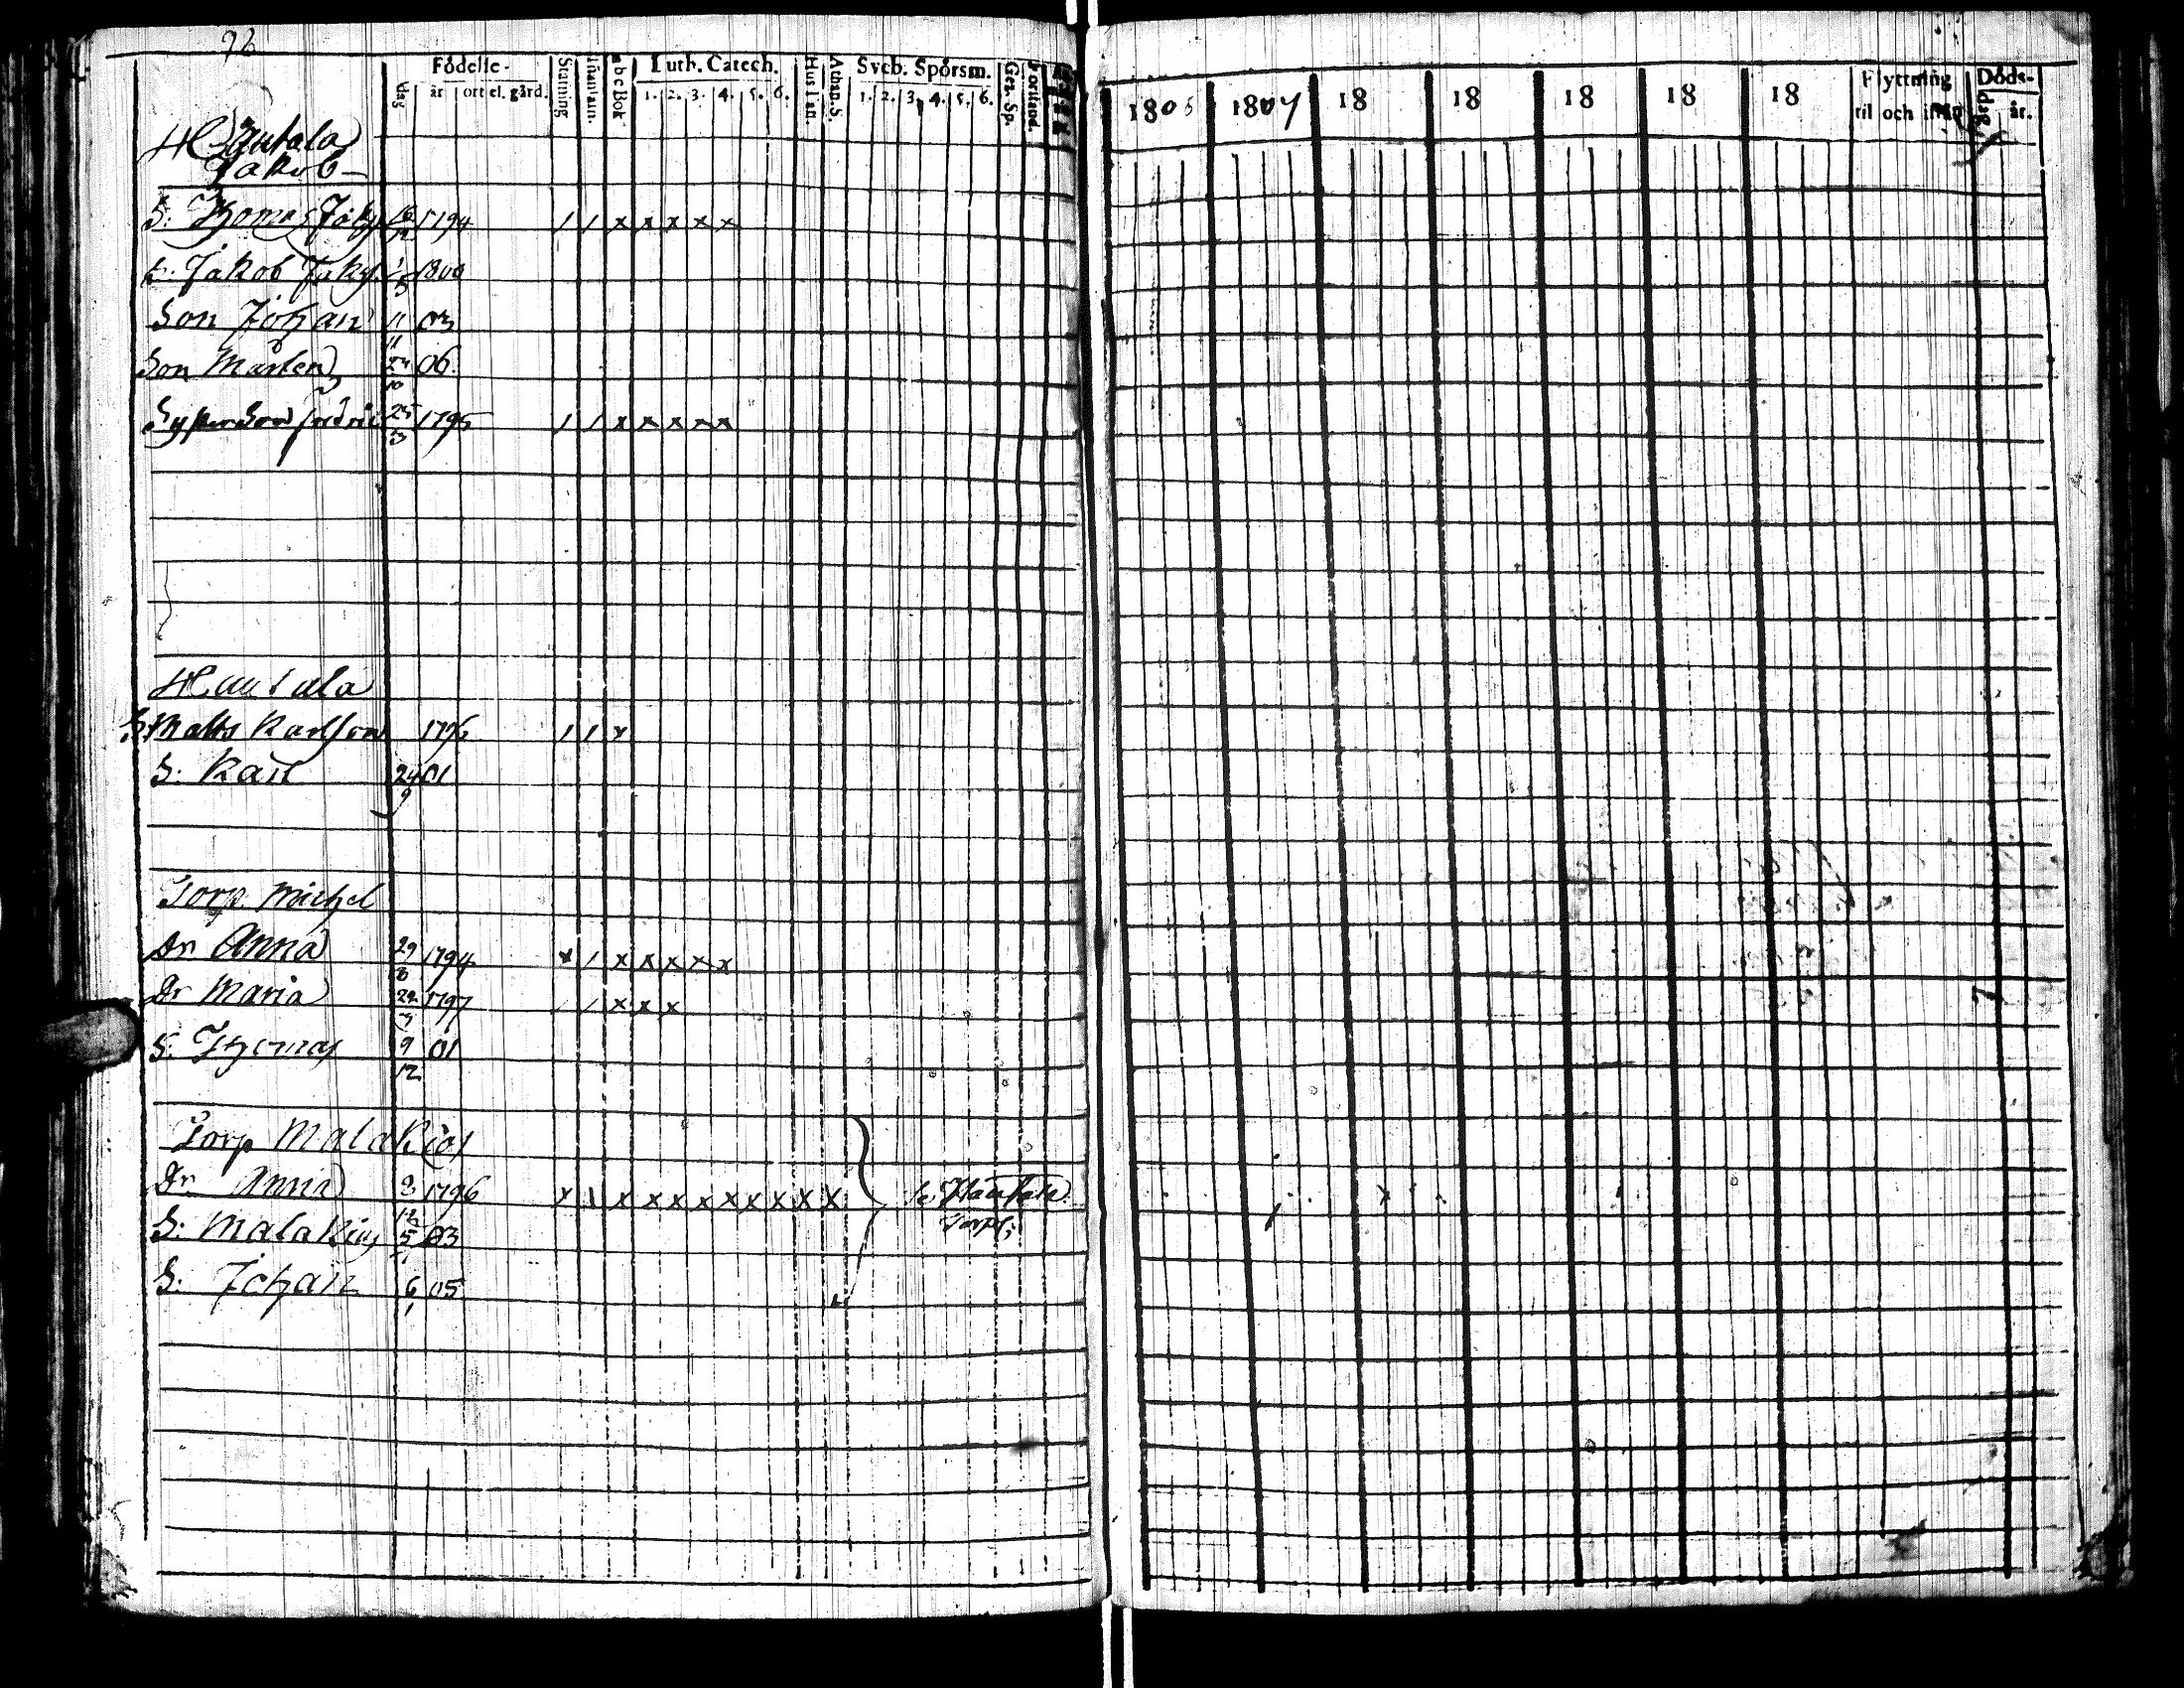 96
Födelse-
dag år ort el. gård.
Stafning
Innanläsn.
a b c Bok
Luth. Catech.
1. 2. 3. 4. 5. 6.
Athan. S.
Sveb. Spörsm.
1. 2. 3. 4. 5. 6.
Gez. Sp.
1806 1807 18 18 18 18 18
Flyttning
til och ifrån
Döds-
dag. år.
Hautala
Jakob
S. Thomas Jaks. 1794 1 1 x x x x x
S. Jakob Jaks. 1/5 1800
Son Johan 11/11 03
Son Mårten 24/10 06
Systerson Fredric 25/3 1795 1 1 x x x x x
Hautala
S. Matts Karlson 1796 1 1 x
S. Karl 24/9 01
Torp. Michel
Dr Anna 29/8 1794 x 1 x x x x x
Dr Maria 22/7 1797 1 1 x x x
S. Thomas 9/12 01
Torp Malakias
Dr. Anna 1796 x 1 x x x x x x x x x se Hautala
Torp.
S. Malakias 03
S. Johan 6/1 05